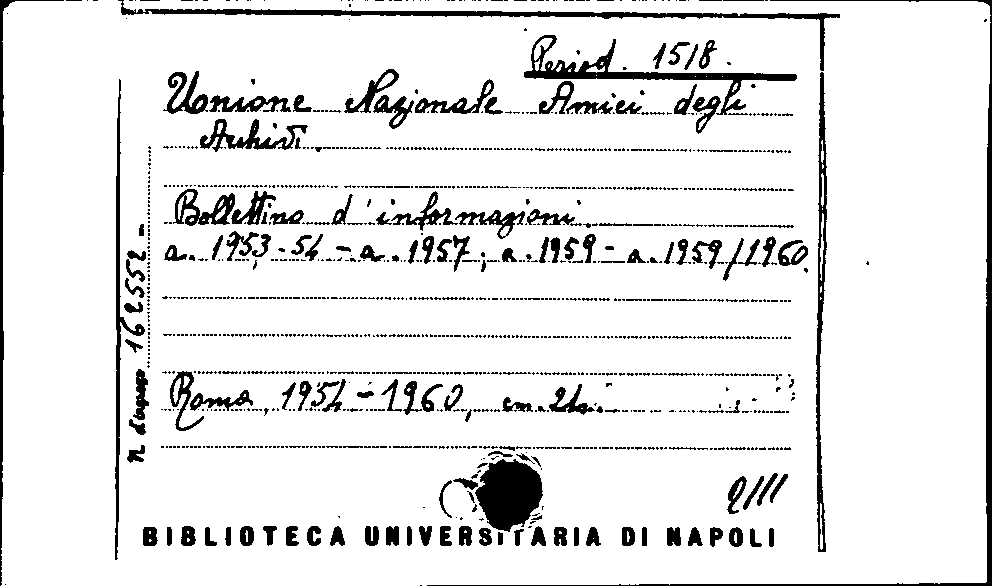 Period. 1518.
Unione Nazionale Amici degli
Archivi.
Bollettino d'informazioni.
a. 1953-54 - a. 1957; a. 1959 - a. 1959/1960.
Roma, 1954-1960, cm. 24.
N. d'ingresso 162552 -
BIBLIOTECA UNIVERSITARIA DI NAPOLI